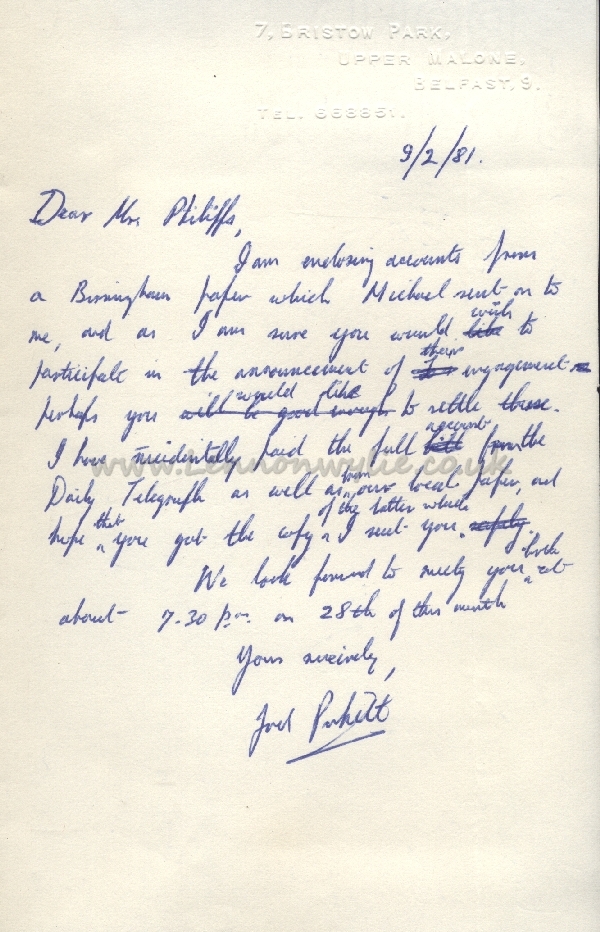 7, BRISTOW PARK,
UPPER MALONE,
BELFAST, 9.
TEL. 668851.
9/2/81.
Dear Mrs Philipps,
I am enclosing accounts from
a Birmingham paper which Michael sent on to
me, and as I am sure you would like wish to
participate in the announcement of their engagement
perhaps you will be good enough would like to settle these.
I have incidentally paid the full account from the
Daily Telegraph as well as from our local paper, and
hope that you got the copy of the latter which I sent you.
We look forward to meeting you both at
about 7.30 p.m. on 28th of this month
Yours sincerely,
www.Lennonwylie.co.uk